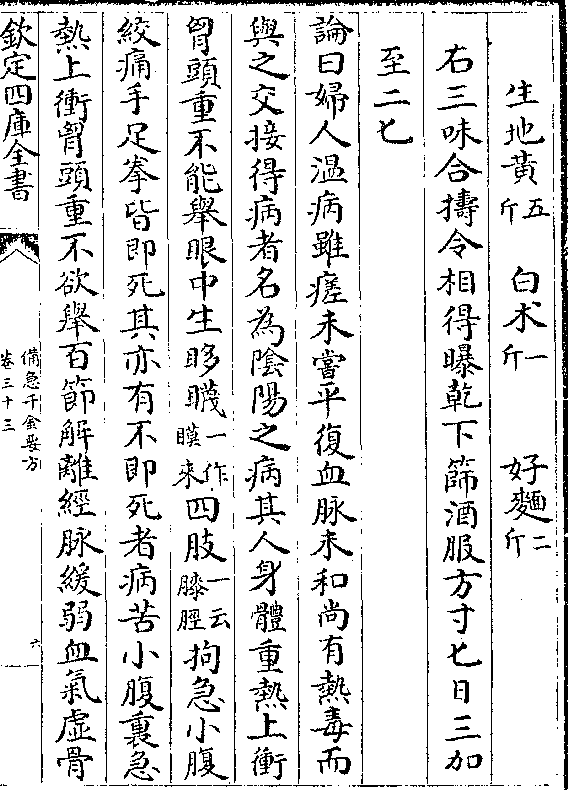 生地黃五斤 白术一斤 好麵二斤
右三味合擣令相得曝乾下篩酒服方寸匕日三加
至二匕
論曰婦人溫病雖瘥未嘗平復血脉未和尚有熱毒而
與之交接得病者名為陰陽之病其人身體重熱上衝
胷頭重不能舉眼中生眵䁾一作瞙來四肢一云膝脛拘急小腹
絞痛手足拳皆即死其亦有不即死者病苦小腹裏急
熱上衝胷頭重不欲舉百節解離經脉緩弱血氣虛骨
欽定四庫全書
備急千金要方
卷三十三
六